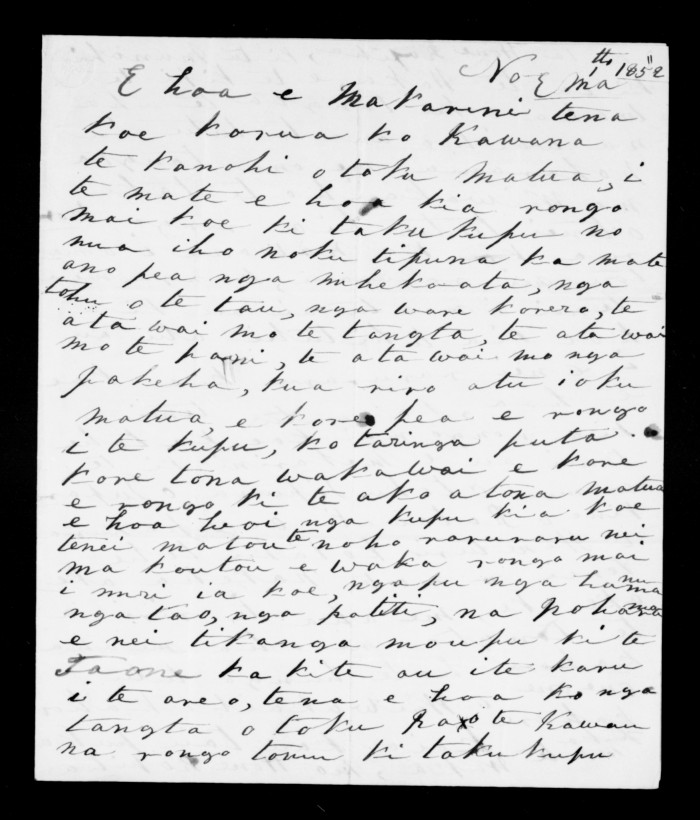 No E ma 1th 1852
E hoa e Makarini tena
koe korua ko Kawana
te kanohi o toku matua, i
te mate e hoa kia rongo
mai koe ki taku kupu no
nua iho noku tipuna ka mate
ano pea nga mhekaata, nga
tohu o te tau, nga ware korero, te
ata wai mo te tangta, te ata wai
mo te pani, te ata wai mo nga
pakeha, kua riro atu i oku
matua, e kore pea e rongo
i te kupu, ko taringa puta.
kore tona wakawai e kore
e rongo ki te ako a tona matua
e hoa heoi nga kupu kia koe
tenei matou te noho raruraru nei
ma koutou e waka rongo mai
i muri ia koe, nga pu nga hanuma
nga tao, nga patiti, na Poha
e nei tikanga moupu ki te
Taone ka kite au i te karu
i te areo, tena e hoa ko nga
tangta o toku pa o te Kawau
na rongo tonu ki taku kupu